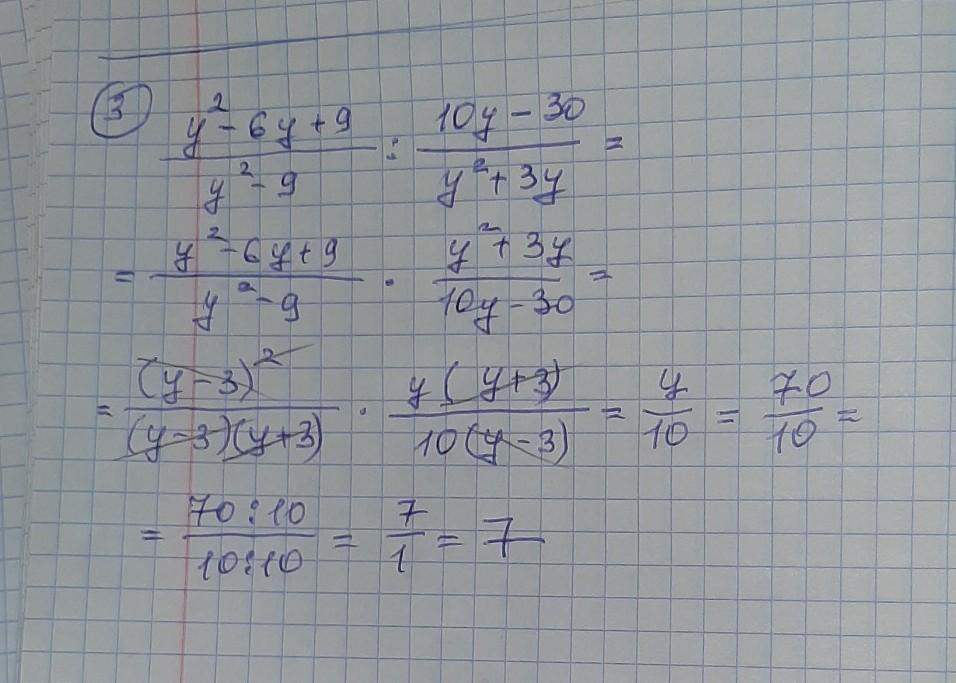 3) (y² - 6y + 9)/(y² - 9) : (10y - 30)/(y² + 3y) =
= (y² - 6y + 9)/(y² - 9) · (y² + 3y)/(10y - 30) =
= (y - 3)²/((y - 3)(y + 3)) · y(y + 3)/(10(y - 3)) = y/10 = 70/10 =
= (70 : 10)/(10 : 10) = 7/1 = 7